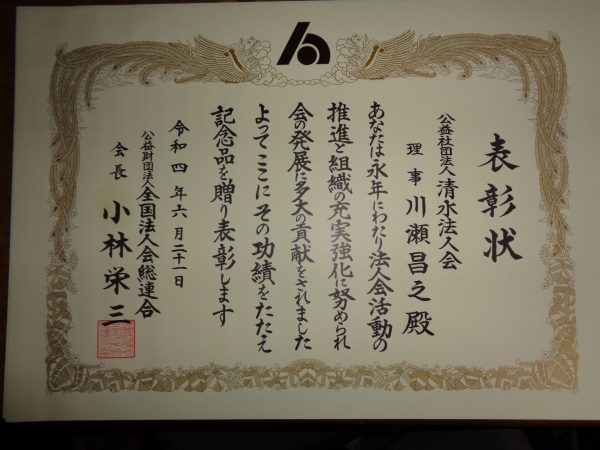 表彰状
公益社団法人清水法人会
理事 川瀬昌之殿
あなたは永年にわたり法人会活動の
推進と組織の充実強化に努められ
会の発展に多大の貢献をされました
よってここにその功績をたたえ
記念品を贈り表彰します
令和四年六月二十一日
公益財団法人全国法人会総連合
会長 小林栄三